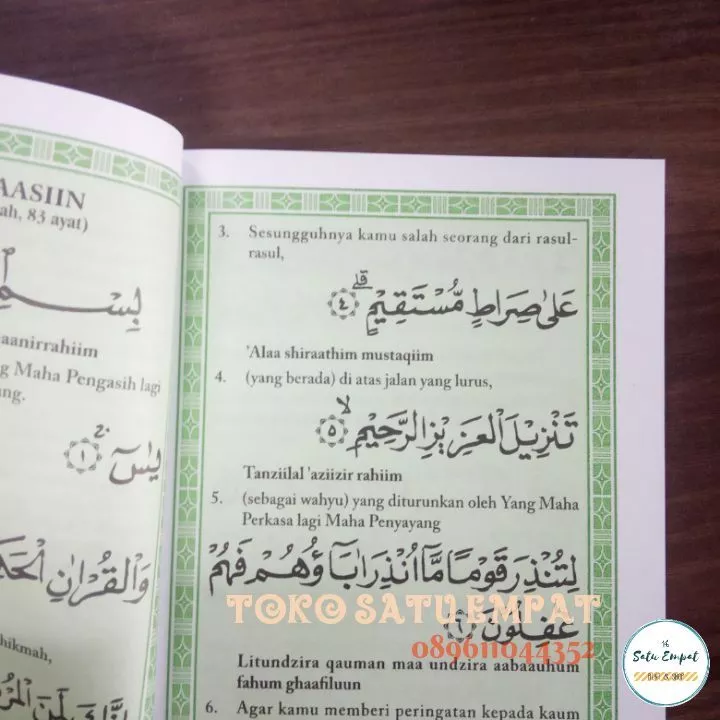 AASIIN
ah, 83 ayat)
aanirrahiim
g Maha Pengasih lagi
ng.
يٰسۤ ۚ ١
وَالْقُرْاٰنِ
hikmah,
3. Sesungguhnya kamu salah seorang dari rasul-
rasul,
عَلٰى صِرَاطٍ مُّسْتَقِيْمٍۗ ٤
'Alaa shiraathim mustaqiim
4. (yang berada) di atas jalan yang lurus,
تَنْزِيْلَ الْعَزِيْزِ الرَّحِيْمِۙ ٥
Tanziilal 'aziizir rahiim
5. (sebagai wahyu) yang diturunkan oleh Yang Maha
Perkasa lagi Maha Penyayang
لِتُنْذِرَ قَوْمًا مَّآ اُنْذِرَ اٰبَاۤؤُهُمْ فَهُمْ
غٰفِلُوْنَ ٦
Litundzira qauman maa undzira aabaauhum
fahum ghaafiluun
6. Agar kamu memberi peringatan kepada kaum
TOKO SATU EMPAT
089611044352
14
Satu Empat